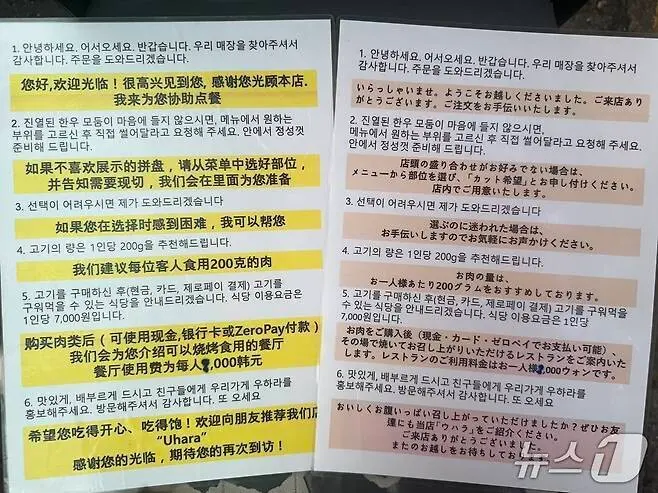 1. 안녕하세요. 어서오세요. 반갑습니다. 우리 매장을 찾아주셔서
감사합니다. 주문을 도와드리겠습니다.
您好,欢迎光临！很高兴见到您, 感谢您光顾本店.
我来为您协助点餐
2. 진열된 한우 모둠이 마음에 들지 않으시면, 메뉴에서 원하는
부위를 고르신 후 직접 썰어달라고 요청해 주세요. 안에서 정성껏
준비해 드립니다.
如果不喜欢展示的拼盘，请从菜单中选好部位，
并告知需要现切，我们会在里面为您准备
3. 선택이 어려우시면 제가 도와드리겠습니다
如果您在选择时感到困难，我可以帮您
4. 고기의 량은 1인당 200g을 추천해드립니다.
我们建议每位客人食用200克的肉
5. 고기를 구매하신 후(현금, 카드, 제로페이 결제) 고기를
구워먹을 수 있는 식당을 안내드리겠습니다. 식당 이용요금은
1인당 7,000원입니다.
购买肉类后（可使用现金,银行卡或ZeroPay付款）
我们会为您介绍可以烧烤食用的餐厅
餐厅使用费为每人,000韩元
6. 맛있게, 배부르게 드시고 친구들에게 우리가게 우하라를
홍보해주세요. 방문해주셔서 감사합니다. 또 오세요
希望您吃得开心、吃得饱！欢迎向朋友推荐我们店
“Uhara”
感谢您的光临，期待您的再次到访！
1. 안녕하세요. 어서오세요. 반갑습니다. 우리 매장을 찾아주셔서
감사합니다. 주문을 도와드리겠습니다.
いらっしゃいませ。ようこそお越しくださいました。ご来店あり
がとうございます。ご注文をお手伝いいたします。
2. 진열된 한우 모둠이 마음에 들지 않으시면,
메뉴에서 원하는 부위를 고르신 후 직접 썰어달라고 요청해 주세요.
안에서 정성껏 준비해 드립니다.
店頭の盛り合わせがお好みでない場合は、
メニューから部位を選び、「カット希望」とお申し付けください。
店内でご用意いたします。
3. 선택이 어려우시면 제가 도와드리겠습니다
選ぶのに迷われた場合は、
お手伝いしますのでお気軽にお声かけください。
4. 고기의 량은 1인당 200g을 추천해드립니다.
お肉の量は、
お一人様あたり200グラムをおすすめしております。
5. 고기를 구매하신 후(현금, 카드, 제로페이 결제) 고기를
구워먹을 수 있는 식당을 안내드리겠습니다. 식당 이용요금은 1인당
7,000원입니다.
お肉をご購入後（現金・カード・ゼロペイでお支払い可能）、
その場で焼いてお召し上がりいただけるレストランをご案内いた
します。レストランのご利用料金はお一人様,000ウォンです。
6. 맛있게, 배부르게 드시고 친구들에게 우리가게 우하라를
홍보해주세요. 방문해주셔서 감사합니다. 또 오세요
おいしくお腹いっぱい召し上がっていただけましたか？ぜひお友
達にも当店「ウハラ」をご紹介ください。
ご来店ありがとうございました。
またのお越しをお待ちしてお
뉴스1